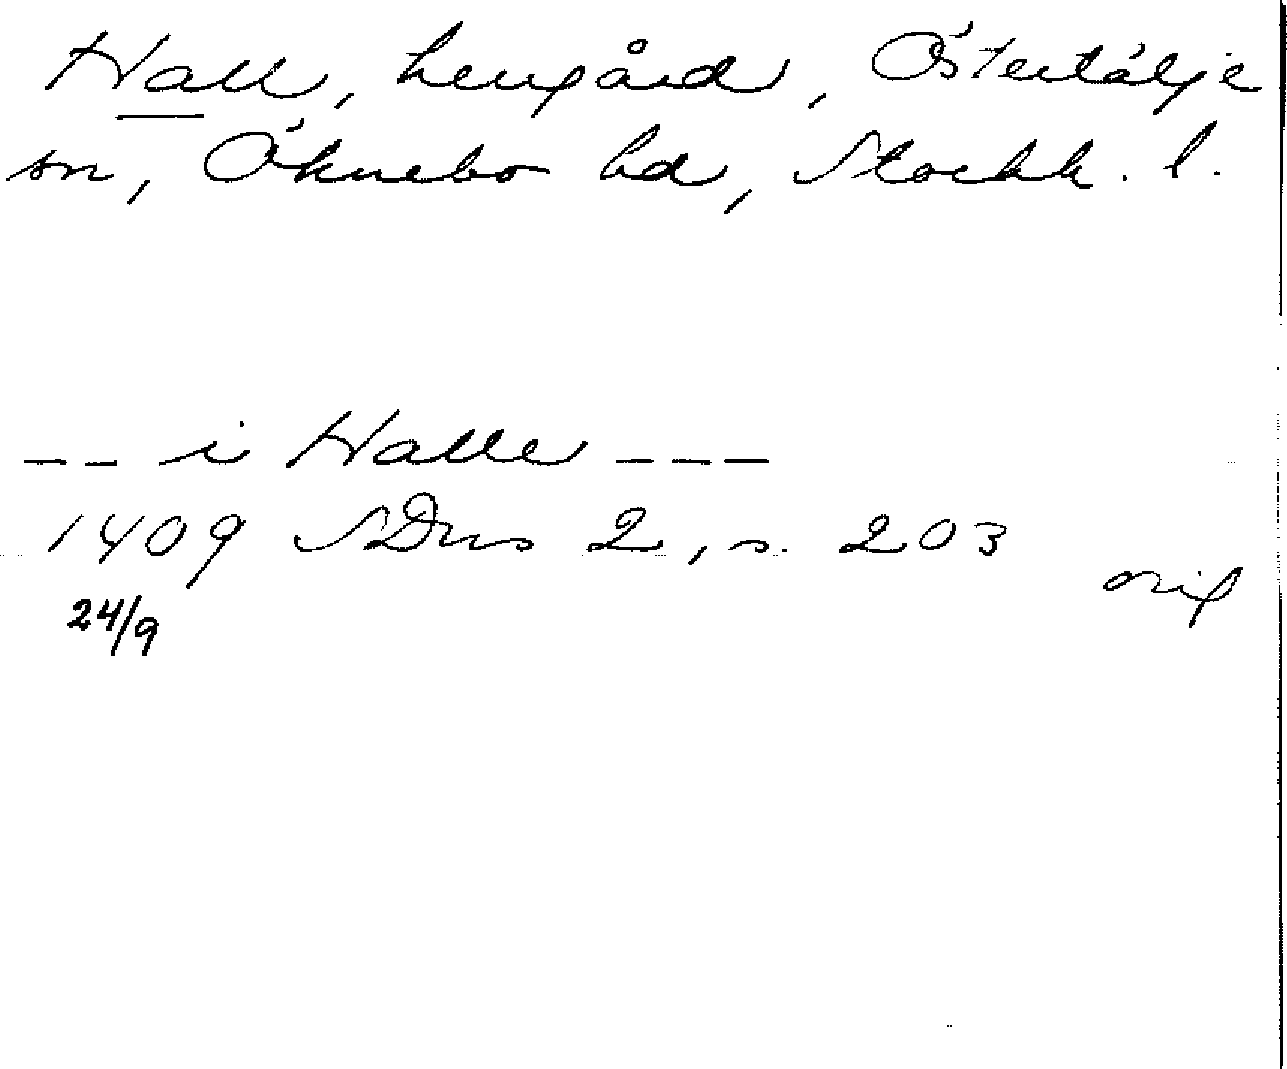 Hall, herrgård, Östertälje
sn, Öknebo hd, Stockh. l.
-- i Halle ---
1409 SDns 2, s. 203
orig
24/9